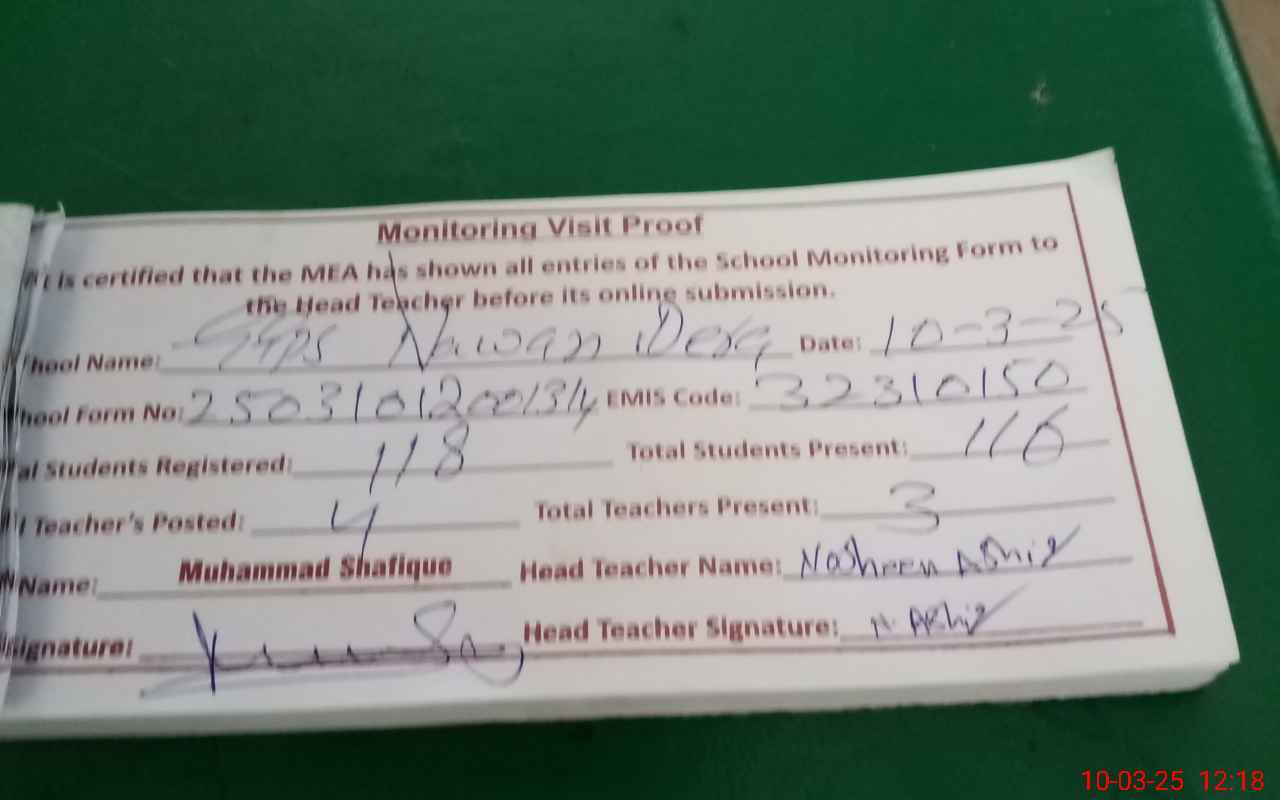 Monitoring Visit Proof
It is certified that the MEA has shown all entries of the School Monitoring Form to
the Head Teacher before its online submission.
hool Name: GGPS Nawan Dera Date: 10-3-25
hool Form No: 2503101200134 EMIS Code: 32310150
al Students Registered: 118 Total Students Present: 116
l Teacher's Posted: 4 Total Teachers Present: 3
Name: Muhammad Shafique Head Teacher Name: Nosheen Ashiq
Signature: Head Teacher Signature: N. Ashiq
10-03-25 12:18